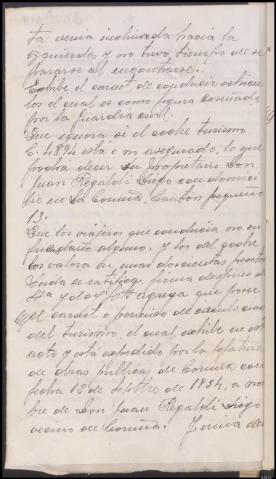 ta venia inclinada hacia la
izquierda y no tuvo tiempo de se
pararse al encontrarse.
Exhibe el carnet de conducir vehícu
los el cual es como figura reseñado
por la Guardia civil.
Que ignora si el coche turismo
C. 4894 está o no asegurado, lo que
podrá decir su propietario Don
Juan Regaldi Diego con domici
lio en La Coruña, Cantón pequeño
13.
Que los viajeros que conducia no su
frieron daño alguno, y los del coche
los valora en unas doscientas pesetas
Leida se ratifica, firma despues de
S.Sª y doy fe agrega que posee
el carnet o permiso de circulacion
del turismo, el cual exhibe en este
acto y está expedido por la Jefatura
de obras publicas de Coruña con
fecha 12 de Septbre de 1934, a nom
bre de Don Juan Regaldi Diego
vecino de Coruña.